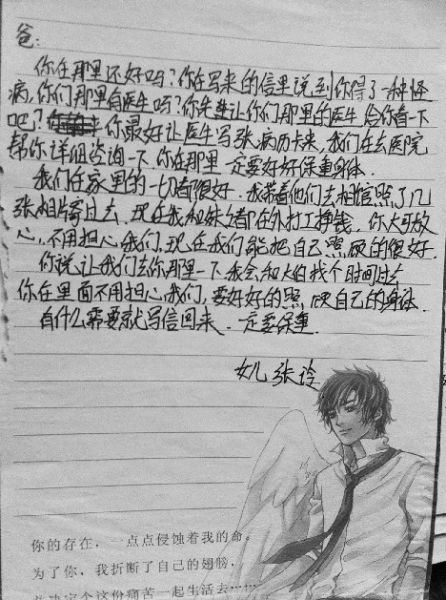 爸:
你在那里还好吗?你在写来的信里说到你得了一种怪
病,你们那里有医生吗?你先让你们那里的医生给你看一下
吧?你最好让医生写张病历卡来,我们在去医院
帮你详细咨询一下,你在那里一定要好好保重身体.
我们在家里的一切都很好.我带着他们去相馆照了几
张相片寄过去,现在我和妹都在外打工挣钱.你大可放
心,不用担心我们,现在我们能把自己照顾的很好.
你说让我们去你那里一下,我会和大伯找个时间过去
你在里面不用担心我们,要好好的照顾自己的身体.
有什么需要就写信回来.一定要保重.
女儿 张玲
你的存在,一点点侵蚀着我的命。
为了你,我折断了自己的翅膀,
这份痛苦一起生活去……